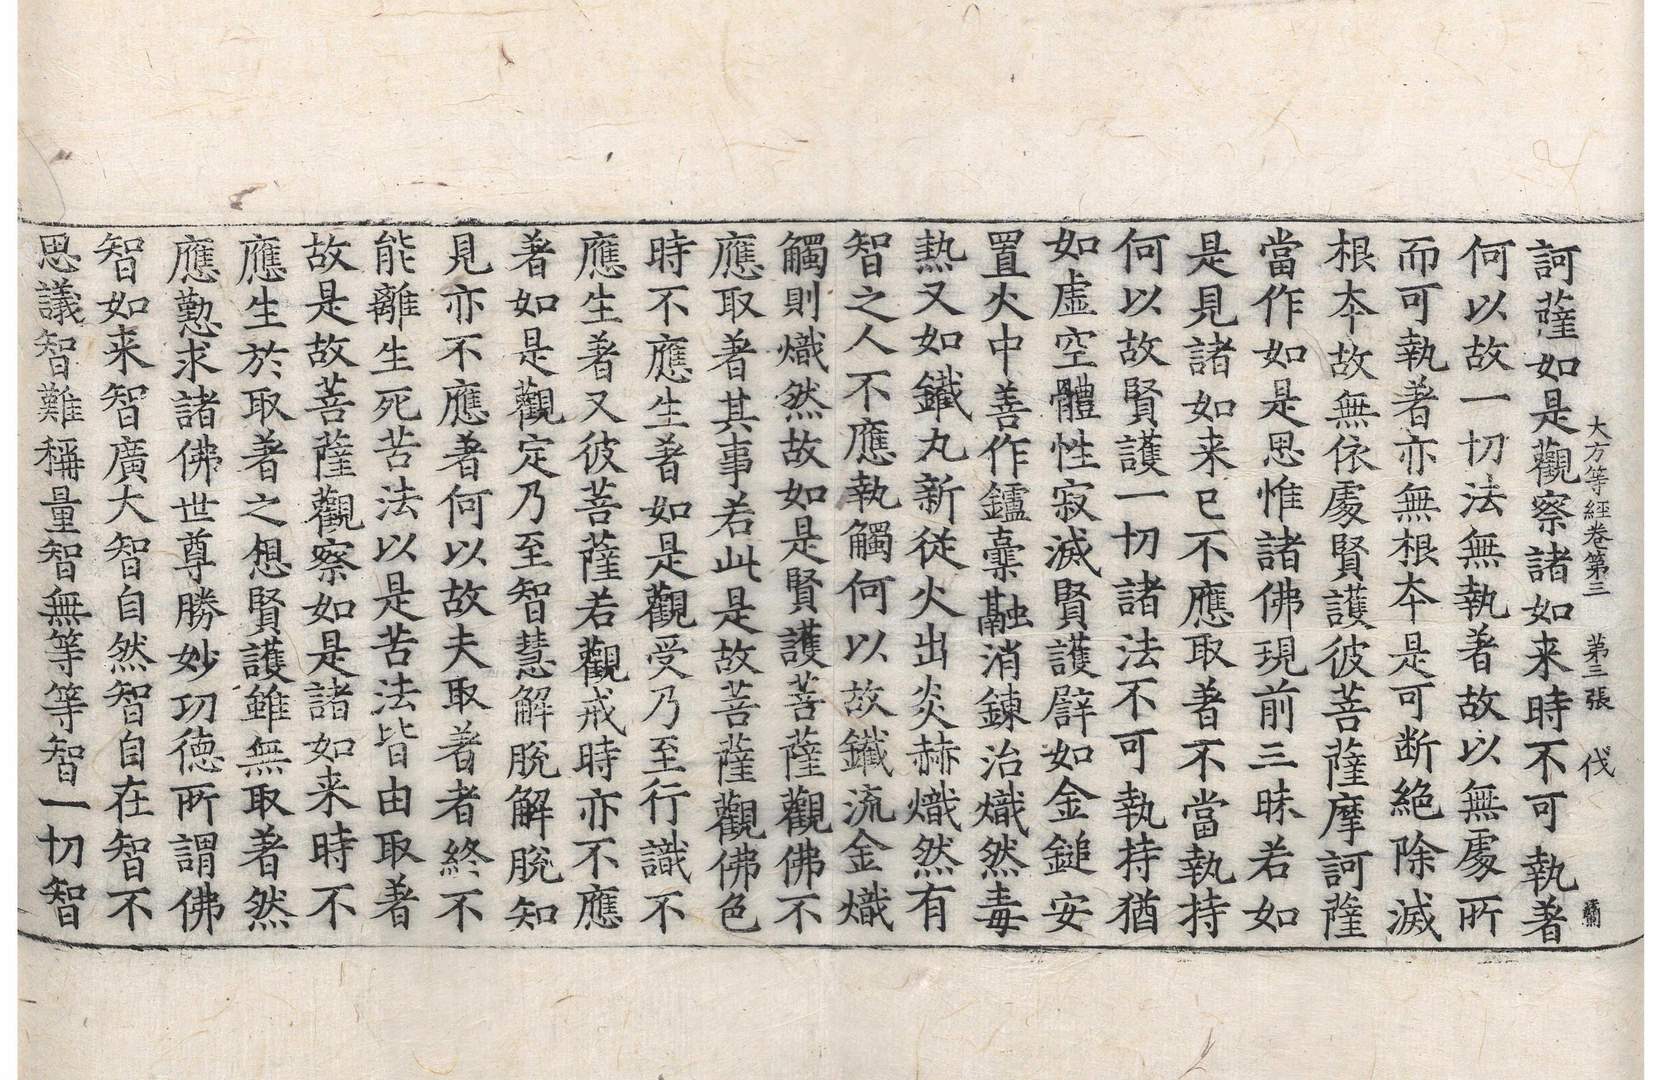 大方等経卷第三 第三張 伐
訶薩如是觀察諸如来時不可執著
何以故一切法無執著故以無處所
而可執著亦無根夲是可断絶除滅
根夲故無依處賢護彼菩薩摩訶薩
當作如是思惟諸佛現前三昧若如
是見諸如来已不應取著不當執持
何以故賢護一切諸法不可執持猶
如虛空體性寂滅賢護譬如金鎚安
置火中善作鑪橐融消鍊治熾然毒
熱又如鐵丸新從火出炎赫熾然有
智之人不應執觸何以故鐵流金熾
觸則熾然故如是賢護菩薩觀佛不
應取著其事若此是故菩薩觀佛色
時不應生著如是觀受乃至行識不
應生著又彼菩薩若觀戒時亦不應
著如是觀定乃至智慧解脫解脫知
見亦不應著何以故夫取著者終不
能離生死苦法以是苦法皆由取著
故是故菩薩觀察如是諸如来時不
應生於取著之想賢護雖無取著然
應懃求諸佛世尊勝妙功德所謂佛
智如来智廣大智自然智自在智不
思議智難稱量智無等等智一切智